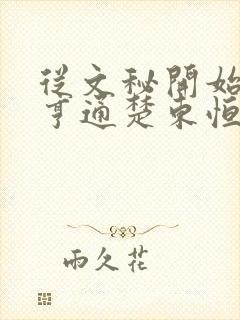 從文秘開始
亨通楚東恒
雨久花